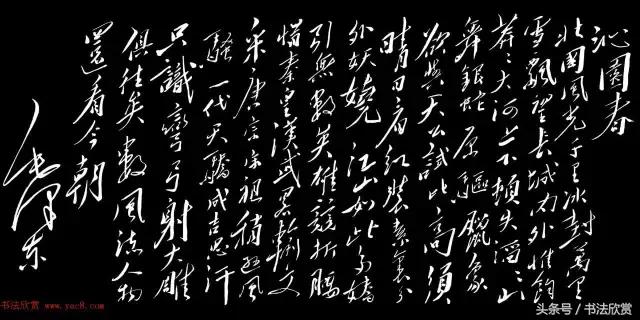 沁園春
北國風光千里冰封萬里
雪飄望長城內外惟餘
莽々大河上下頓失滔々山
舞銀蛇原驅臘象
欲與天公試比高須
晴日看紅裝素裹分
外妖嬈江山如此多嬌
引無數英雄競折腰
惜秦皇漢武略輸文
采唐宗宋祖稍遜風
騷一代天驕成吉思汗
只識彎弓射大雕
俱往矣數風流人物
還看今朝
毛澤東
书法欣赏 www.yac8.com
头条号/书法欣赏